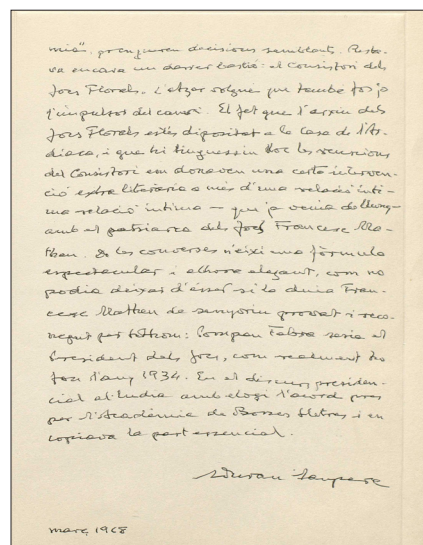 mià", prenguren decisions semblants. Resta-
va encara un darrer bastió: el Consistori dels
Jocs Florals. L'atzar volgué que també fos jo
l'impulsor del canvi. El fet que l'arxiu dels
Jocs Florals estés dipositat a la Casa de l'Ar-
diaca, i que hi tinguessin lloc les reunions
del Consistori em donaven una certa interven-
ció extra literària a més d'una relació ínti-
ma relació íntima — que ja venia de lluny —
amb el patriarca dels Jocs Francesc Ma-
theu. De les converses n'eixí una fórmula
espectacular i alhora elegant, com no
podia deixar d'ésser si la duia Fran-
cesc Matheu de senyoriu provat i reco-
negut per tothom: Pompeu Fabra seria el
President dels Jocs, com realment ho
fou l'any 1934. En el discurs presiden-
cial al·ludia amb elogi l'acord pres
per l'Acadèmia de Bones Lletres i en
copiava la part essencial.
Duran i Sanpere
març 1968